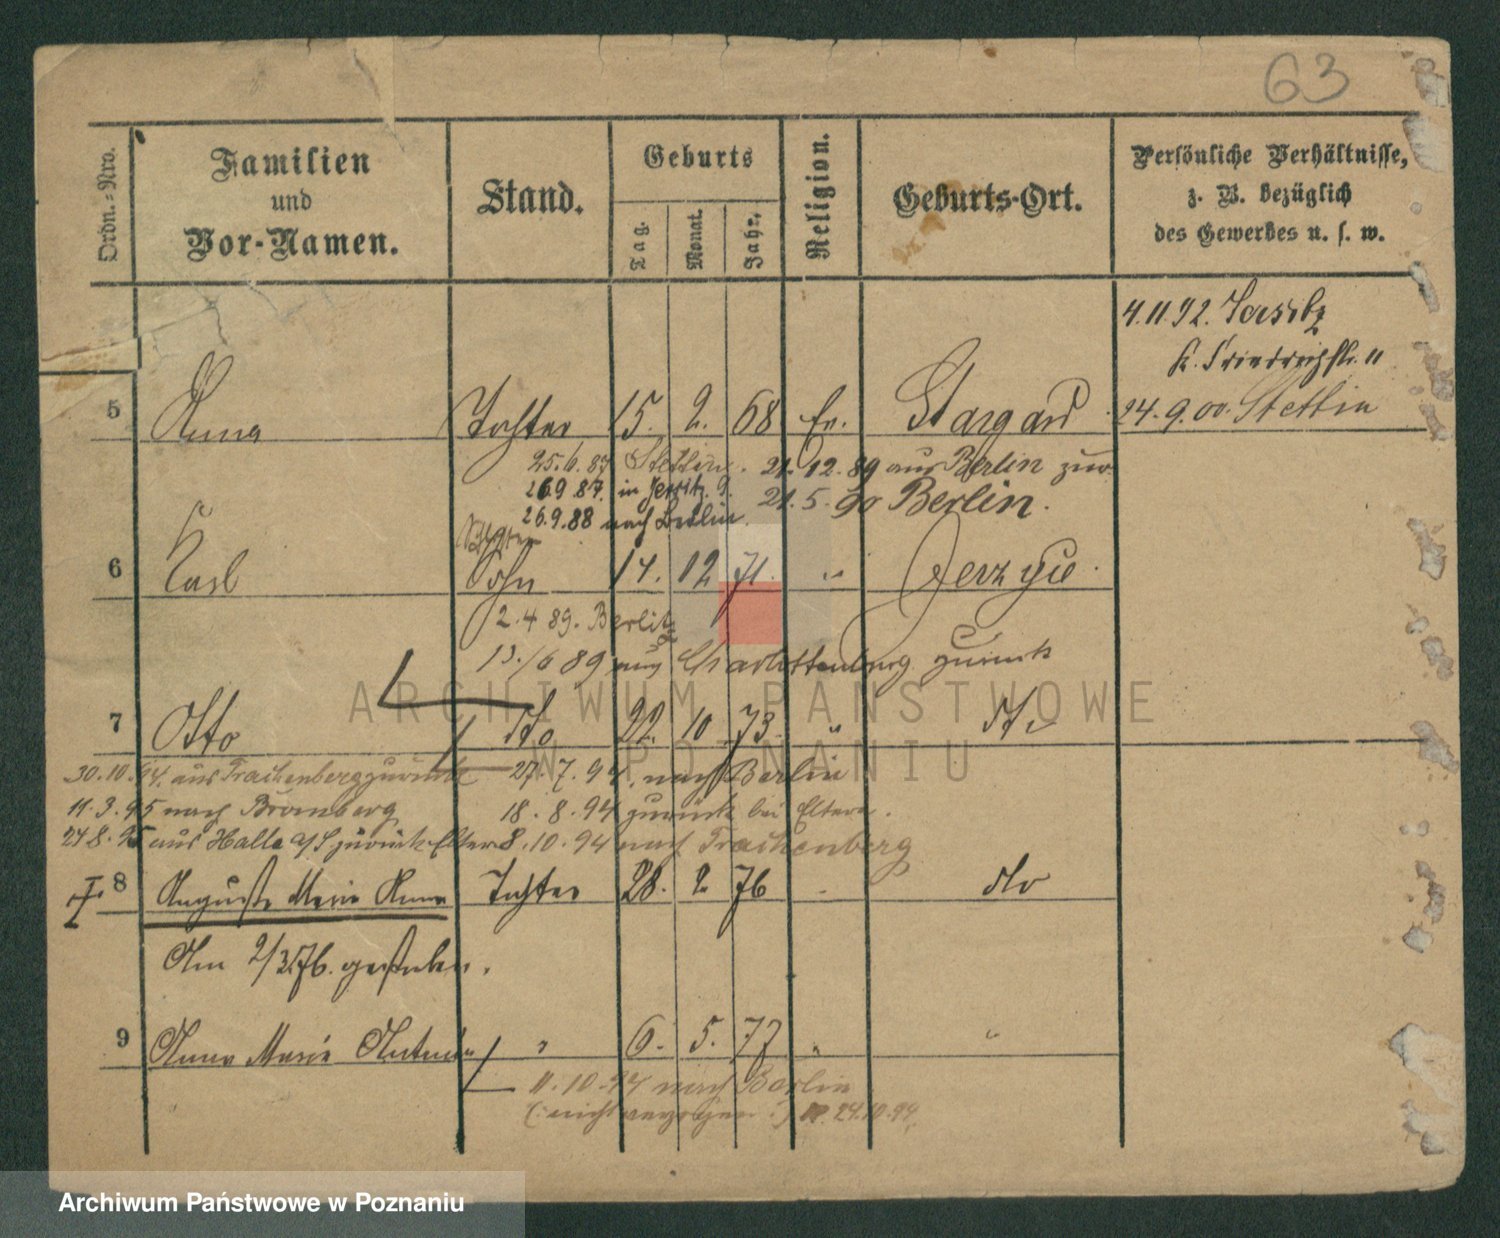 63
Ordn.-Nro.
Familien
und
Vor-Namen.
Stand.
Geburts
Tag.
Monat.
Jahr.
Religion.
Geburts-Ort.
Persönliche Verhältnisse,
z. B. bezüglich
des Gewerbes u. s. w.
4.11.92.
11
5 Anna Tochter 15. 2. 68 Ev. Stargard 24.9.00. Stettin
25.6.87 Stettin. 21.12.89 aus Berlin zur.
26.9.87. in Jersitz 9. 21.5.90 Berlin.
26.9.88 nach Berlin.
6 Karl Sohn 14. 12 71. " Jerzyce.
2.4 89. Berlin
13./6 89 aus Charlottenburg zurück
7 Otto dto 22. 10 73 " dto
30.10.94. aus Trachenberg zurück 27.7.94. nach Berlin
11.3.95 nach Bromberg 18.8.94 zurück bei Eltern.
24.8.95 aus Halle a/S zurück Eltern 8.10.94 nach Trachenberg
8 Auguste Marie Anna Tochter 28. 2. 76 dto
Am 2/3.76. gestorben.
9 Anna Marie " 6. 5. 77 " "
11.10.94 nach Berlin
24.10.94.
ARCHIWUM PAŃSTWOWE
W POZNANIU
Archiwum Państwowe w Poznaniu